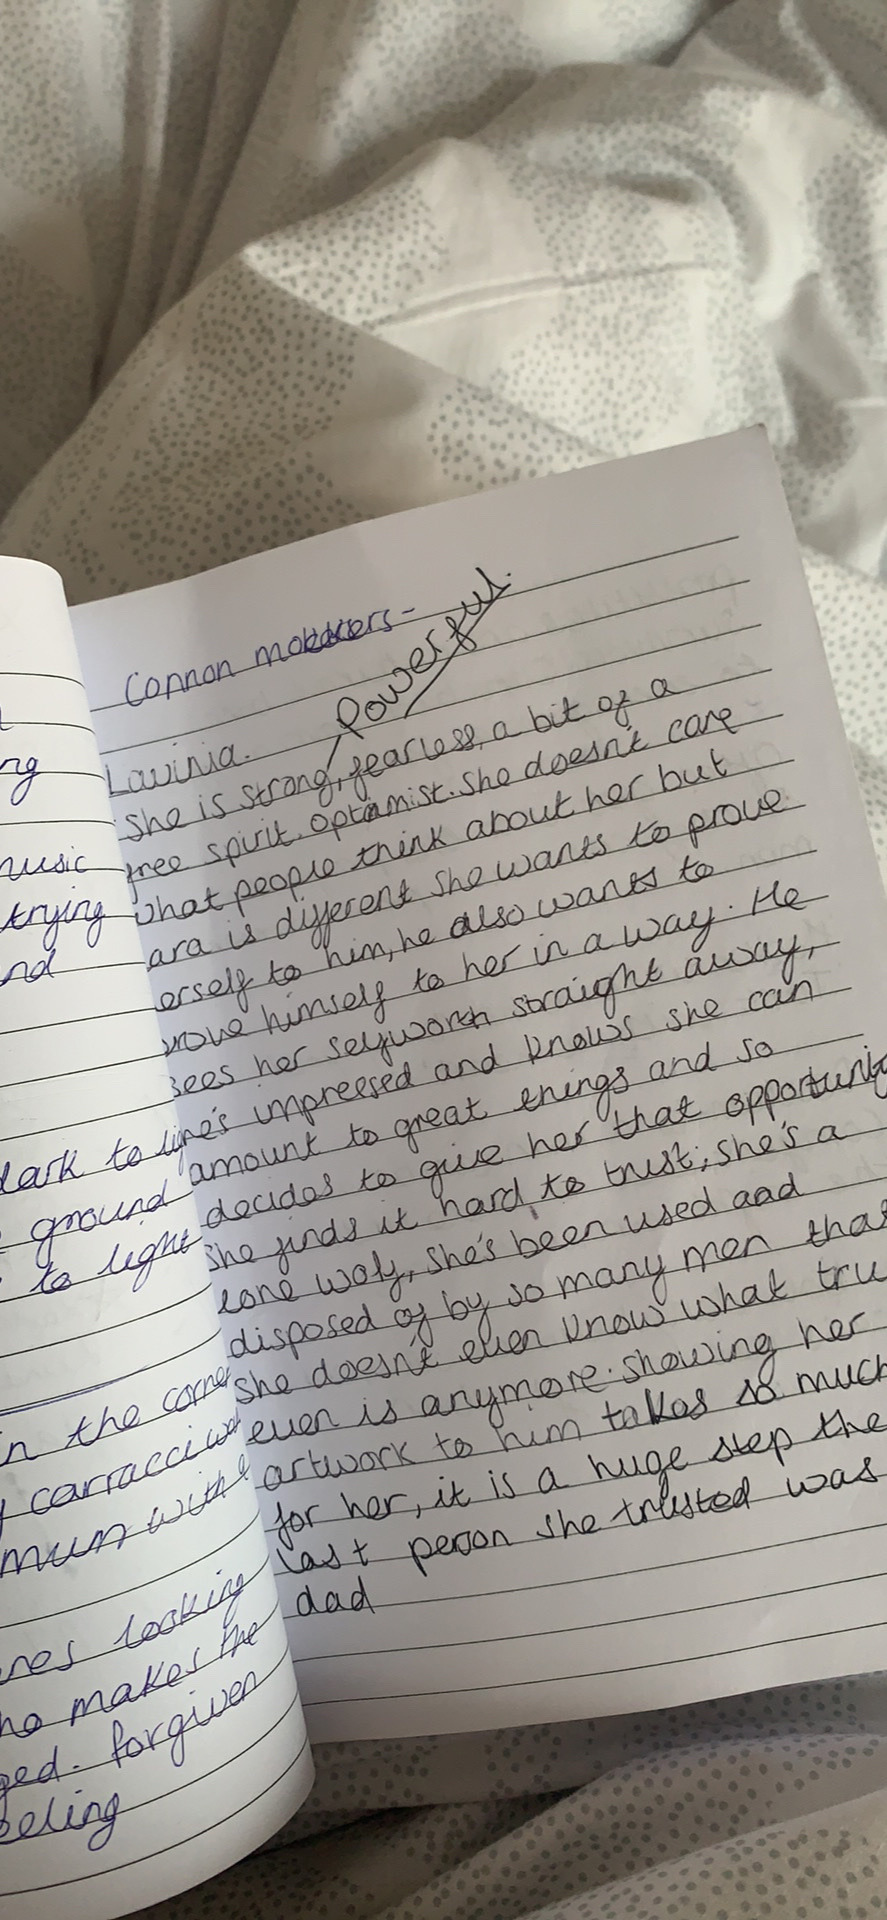 ng
music
trying
nd
dark to
ground
to light
in the corner
carracci
mun with
nes looking
makes the
ged. forgiven
eeling
Connon
Powerful.
Lavinia.
She is strong, fearless, a bit of a
free spirit. optamist. She doesn't care
what people think about her but
ara is different she wants to prove
erself to him, he also wants to
rove himself to her in a way. He
sees her selfworth straight away,
he's impressed and knows she can
amount to great things and so
decides to give her that opportunit
She finds it hard to trust, she's a
lone wolf, she's been used and
disposed of by so many men that
she doesn't even know what tru
even is anymore. showing her
artwork to him takes so much
for her, it is a huge step the
last person she trusted was
dad